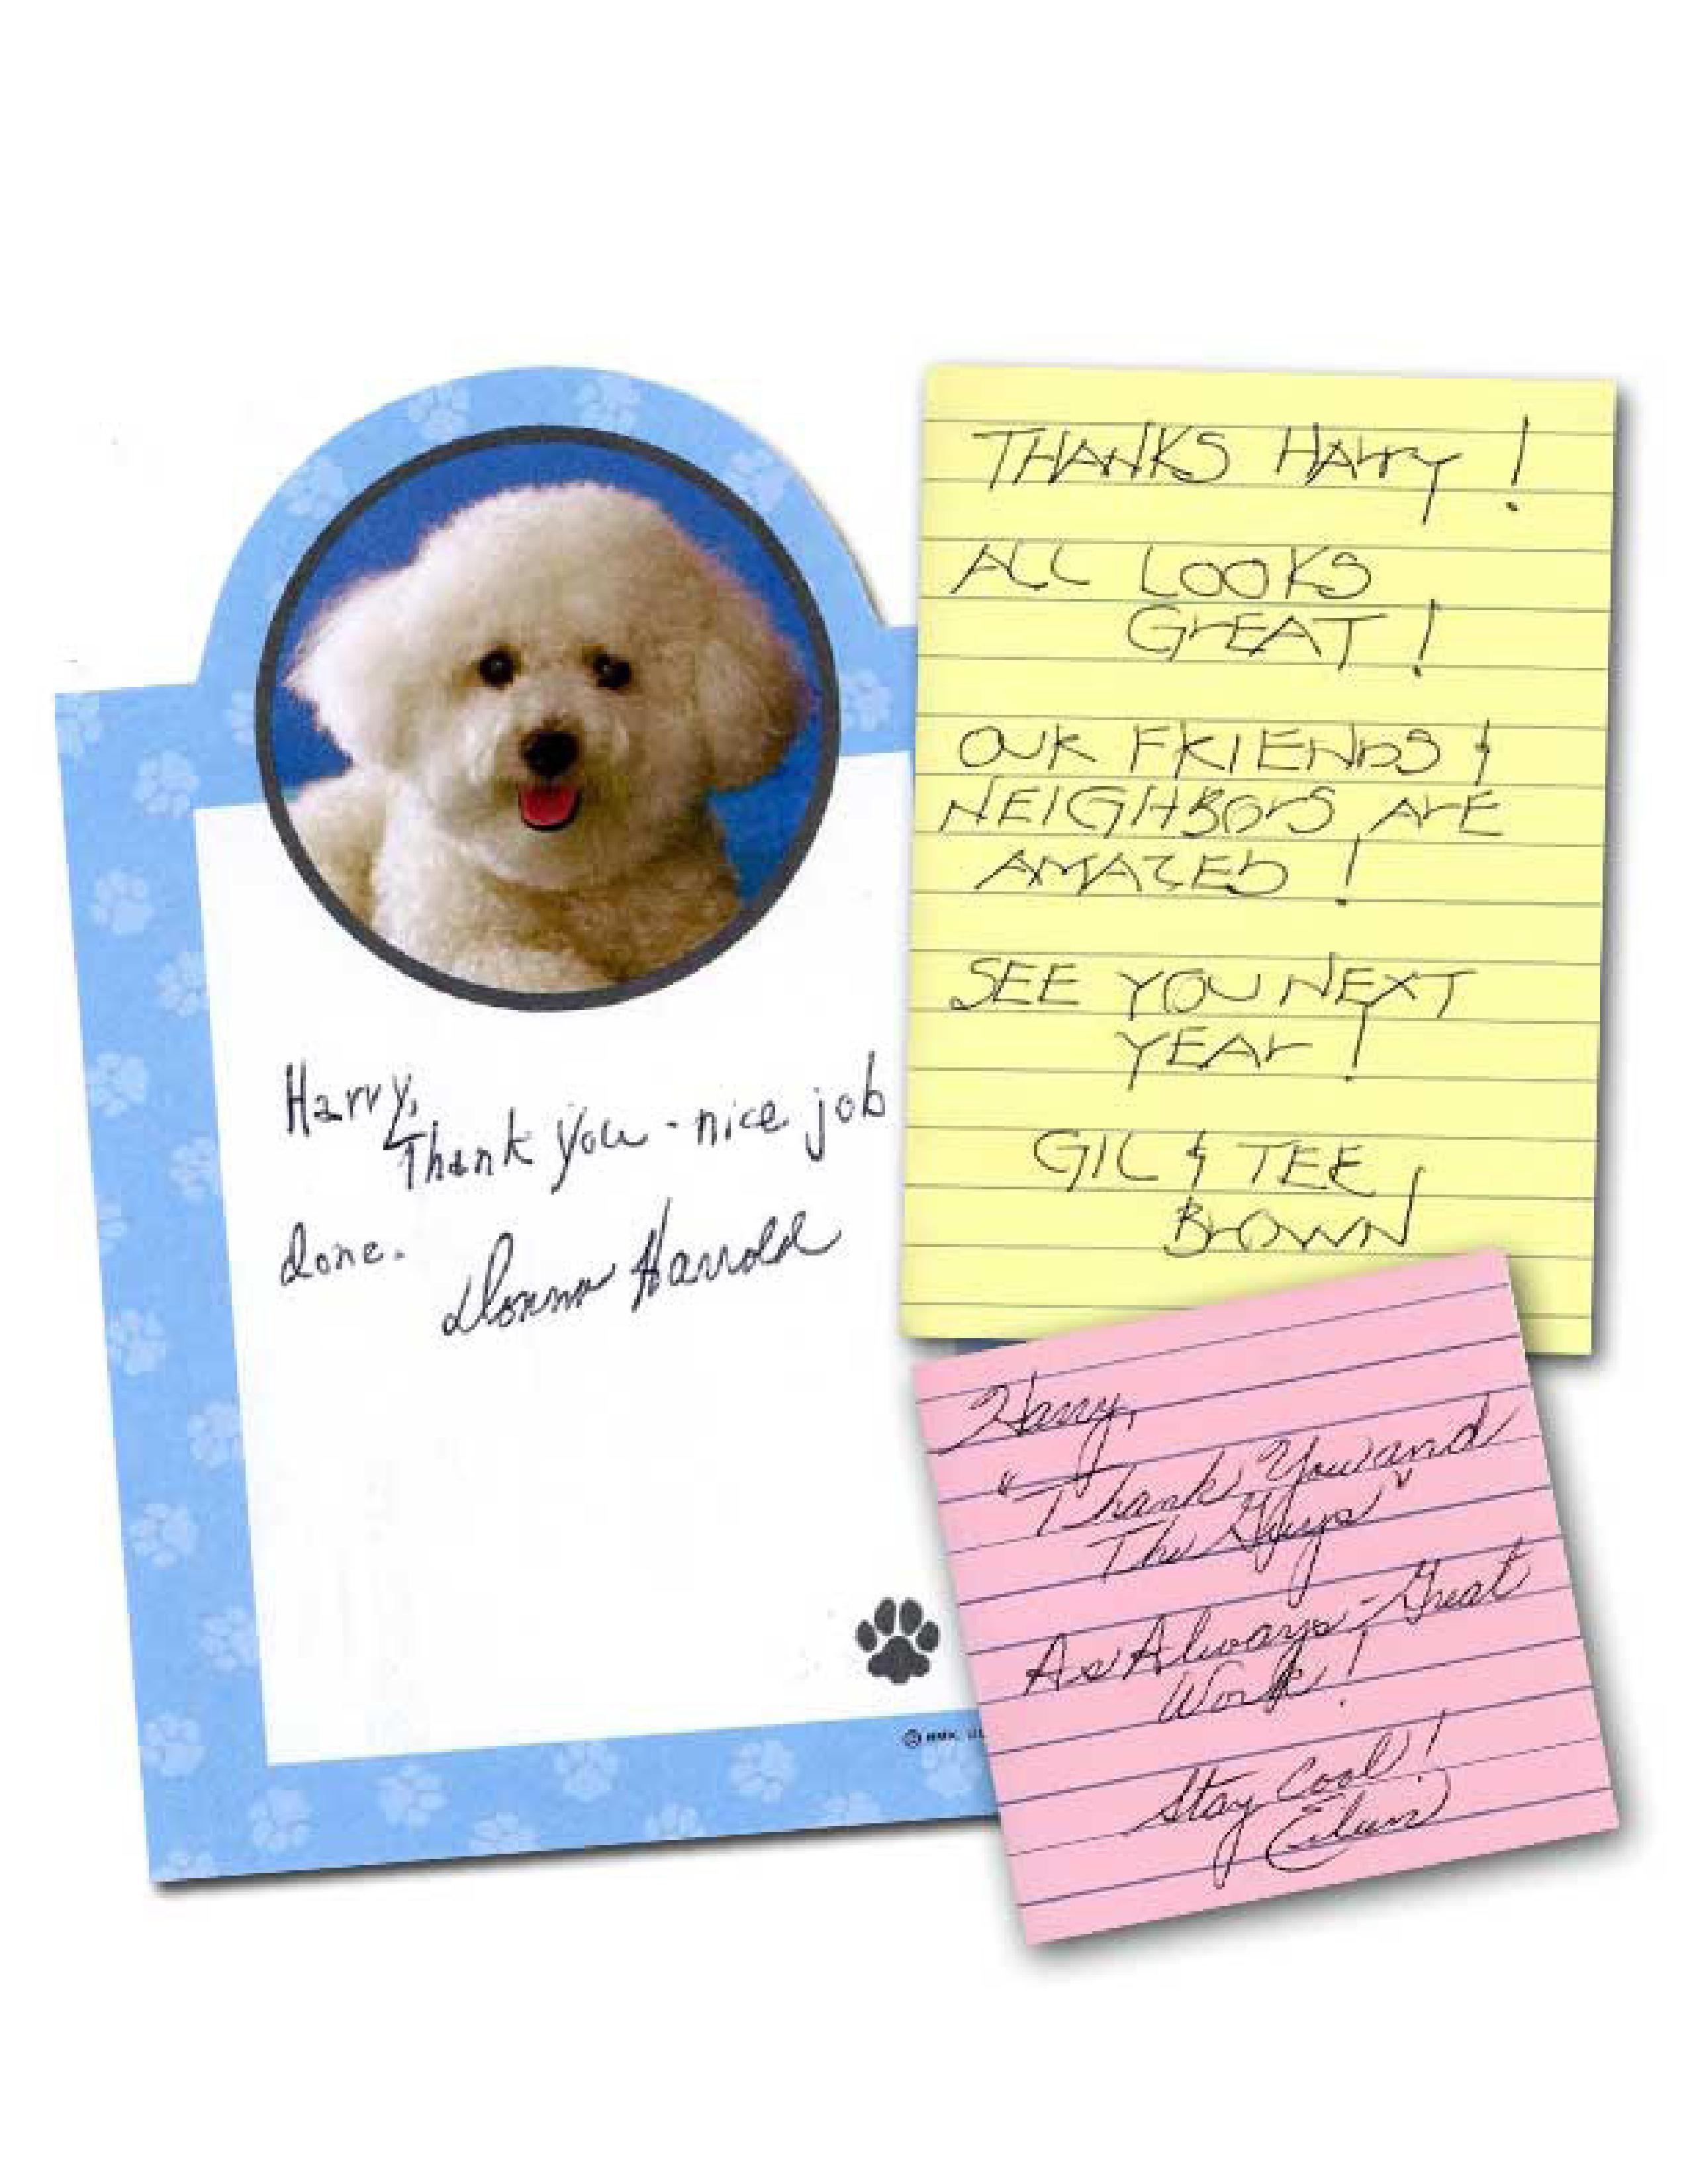 Harry,
Thank you - nice job
done.
Donna Harrold
THANKS HArry !
ALL LOOKS
GrEAT !
OUR FRIENDS &
NEIGHBOrS ArE
AMAZED !
SEE YOU NEXT
YEAr !
GIL & TEE
BrOWN
Harry,
"Thank You and
The Guys"
As Always - Great
Work!
Stay Cool!
© HMK.